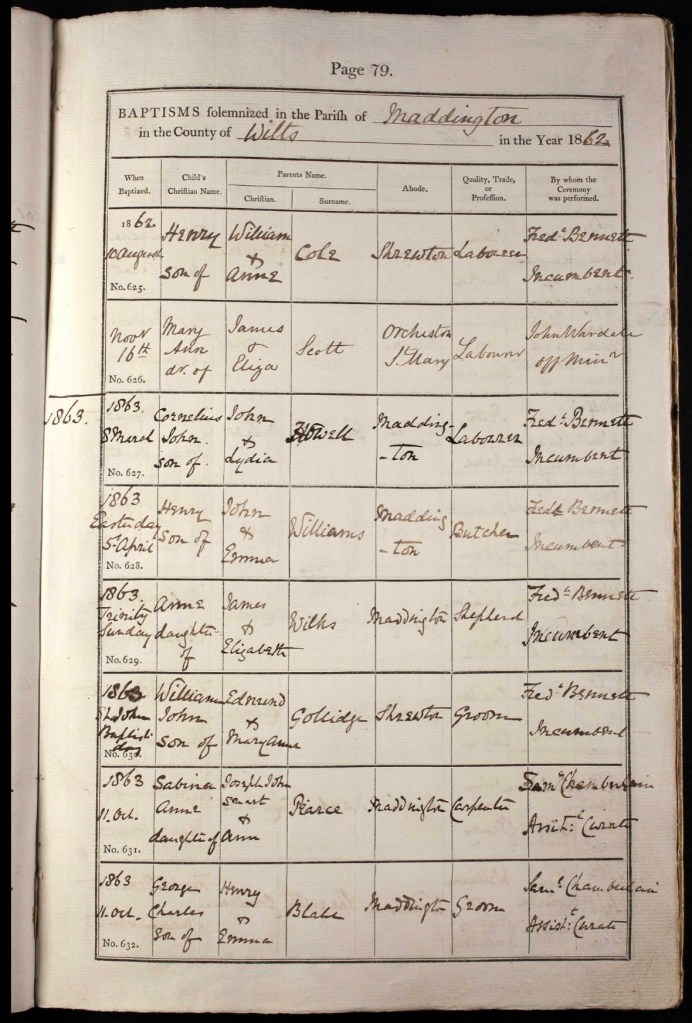 Page 79.
BAPTISMS solemnized in the Parish of Maddington
in the County of Wilts in the Year 1862
When Baptized. Child's Christian Name. Parents Name. Christian. Surname. Abode. Quality, Trade, or Profession. By whom the Ceremony was performed.
1862. Henry William Cole Shrewton Labourer Fredk Bennett
10 August son of & Anne Incumbent.
No. 625.
Novr Mary James Scott Orcheston Labourer John Wardale
16th Ann & St Mary off Minr
dr. of Eliza
No. 626.
1863.
1863. Cornelius John Howell Madding- Labourer Fredk Bennett
8 March John & -ton Incumbent
son of Lydia
No. 627.
1863 Henry John Williams Madding Butcher Fredk Bennett
Easterday son of & -ton Incumbent
5th April Emma
No. 628.
1863. Anne James Wilks Maddington Shepherd Fredk Bennett
Trinity daughter & Incumbent
Sunday of Elizabeth
No. 629.
1863 William Edmund Gollidge Shrewton Groom Fredk Bennett
St John John & Incumbent
Baptist son of Mary Anne
day
No. 630.
1863 Sabina Joseph John Pearce Maddington Carpenter Saml Chamberlain
11. Oct. Anne Smart & Assist: Curate
daughter of Ann
No. 631.
1863 George Henry Blake Maddington Groom Saml Chamberlain
11. Oct. Charles & Assist: Curate
son of Emma
No. 632.